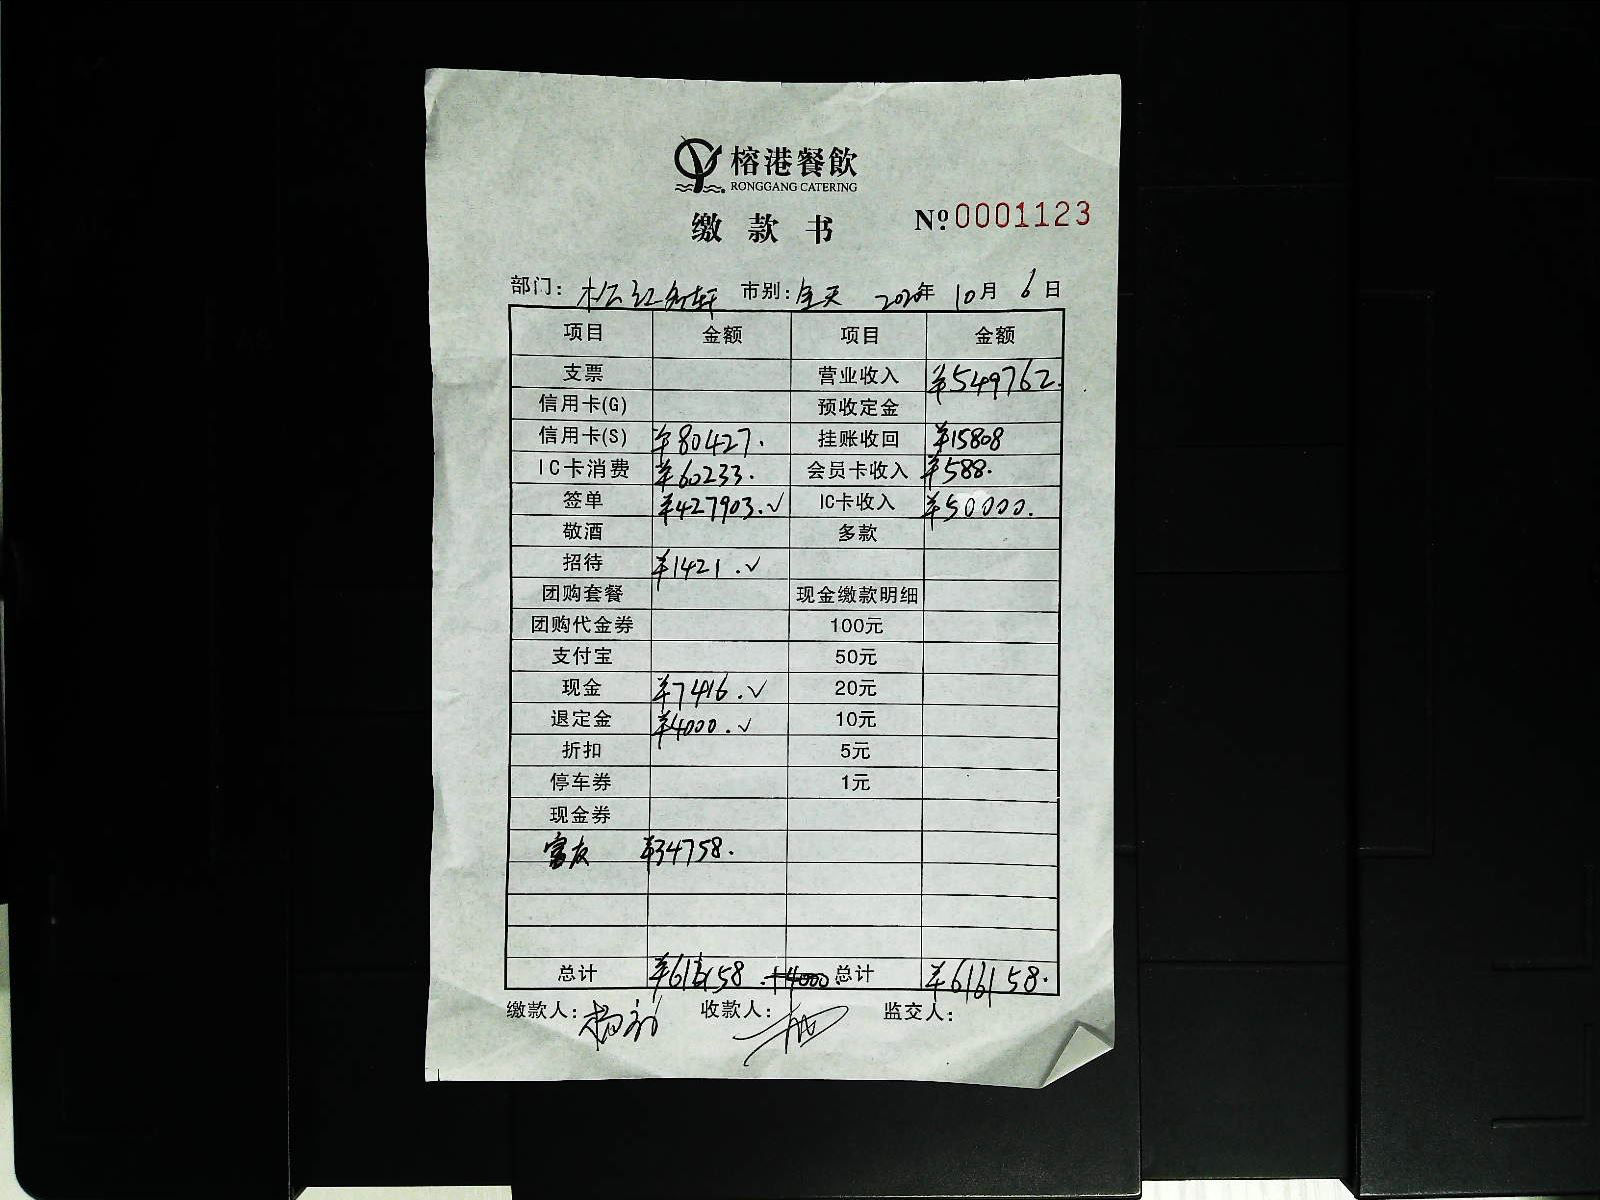 榕港餐飲
RONGGANG CATERING
缴款书 Nº 0001123
部门: 市别: 全天 2020年 10月 6日
项目 金额 项目 金额
支票 营业收入 ¥549762.
信用卡(G) 预收定金
信用卡(S) ¥80427. 挂账收回 ¥15808
IC卡消费 ¥60233. 会员卡收入 ¥588.
签单 ¥427903.✓ IC卡收入 ¥50000.
敬酒 多款
招待 ¥1421.✓
团购套餐 现金缴款明细
团购代金券 100元
支付宝 50元
现金 ¥7416.✓ 20元
退定金 ¥4000.✓ 10元
折扣 5元
停车券 1元
现金券
富友 ¥34758.
总计 ¥616158. 总计 ¥616158.
缴款人: 收款人: 监交人: